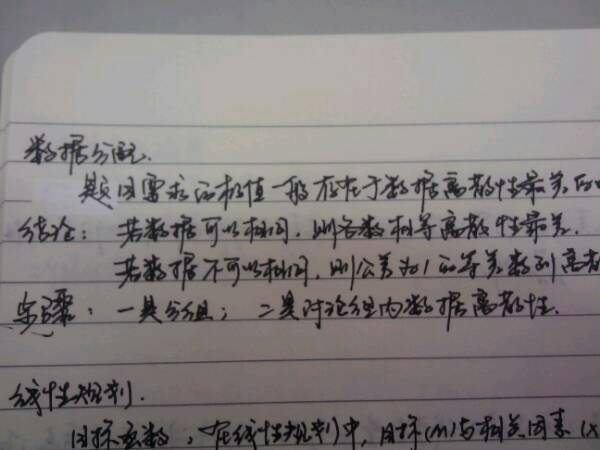 数据分配.
题目需求的极值一般存在于数据离散性最差的
结论：若数据可以相同，则各数相等离散性最差.
若数据不可以相同，则公差为1的等差数列离散
步骤：一是分组；二是讨论组内数据离散性.
线性规划.
目标函数，在线性规划中，目标(M)与相关因素(X